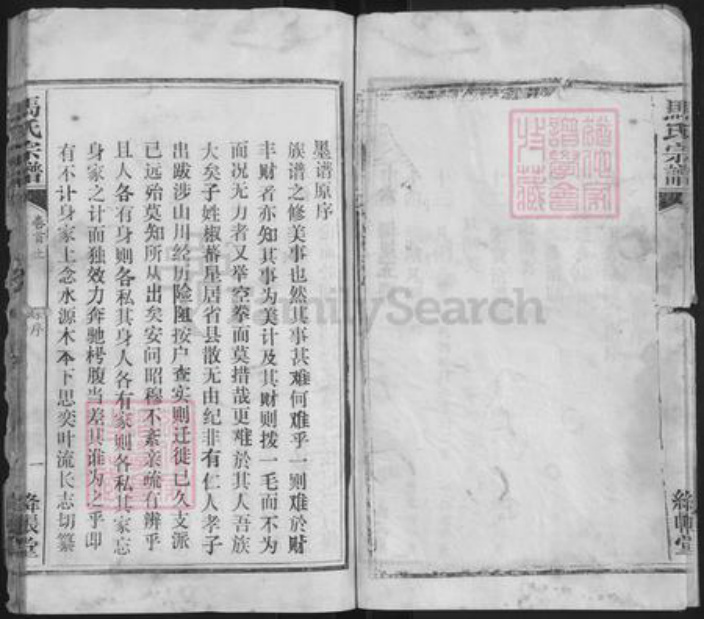 馬氏宗譜
絳帳堂
墨谱原序
族谱之修美事也然其事甚难何难乎一则难於财
丰财者亦知其事为美计及其财则拨一毛而不为
面况无力者又举空拳而莫措哉更难於其人吾族
大矣子姓椒蕃星居省县散无由纪非有仁人孝子
出跋涉山川经历险阻按户查实则迁徙已久支派
已远殆莫知所从出矣安问昭穆不紊亲疏有辨乎
且人各有身则各私其身人各有家则各私其家忘
身家之计而独效力奔驰枵腹当差其谁为之乎即
有不计身家上念水源木本下思奕叶流长志切纂
馬氏宗譜
卷首上
原序
一
絳帳堂
FamilySearch